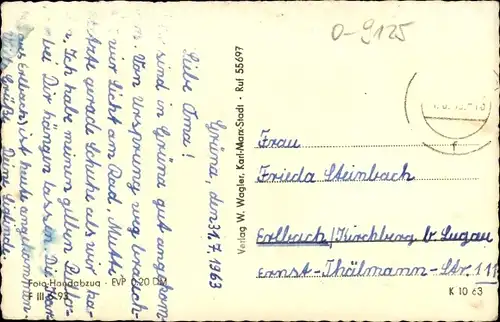 O-9125
Grüna, den 31.7.1963
Liebe Oma!
sind in Grüna gut angekom-
Von Ursprung weg brauch-
wir Licht am Rad, Mutti
gerade Schuhe als wir
Ich habe meinen gelben
bei Dir hängen lassen. Die
aus Erlbach) ist heute angekommen.
Grüße Deine
Foto-Handabzug · EVP 0,20 DM
Verlag W. Wagler, Karl-Marx-Stadt · Ruf 55697
Frau
Frieda Steinbach
Erlbach/Kirchberg b. Lugau
Ernst-Thälmann-Str. 111
K 10 63